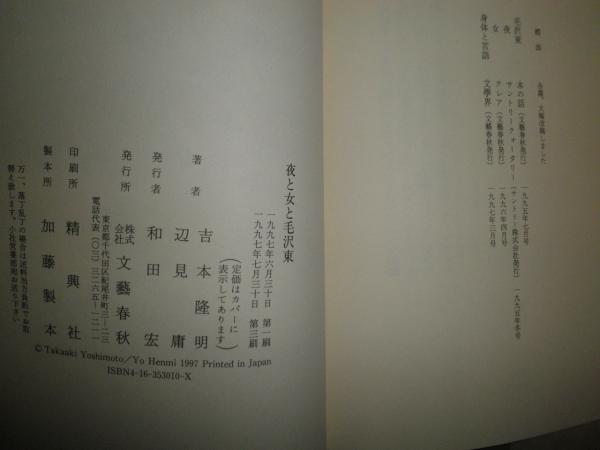 初出
各篇、大幅改稿しました
毛沢東 本の話(文藝春秋発行) 一九九五年七月号
夜 サントリークォータリー(サントリー株式会社発行) 一九九五年冬号
女 クレア(文藝春秋発行) 一九九六年四月号
身体と言語 文學界(文藝春秋発行) 一九九七年三月号
夜と女と毛沢東
一九九七年六月三十日 第一刷
一九九七年七月三十日 第三刷
(定価はカバーに
表示してあります)
著者 吉本隆明
辺見庸
発行者 和田宏
発行所 株式会社 文藝春秋
東京都千代田区紀尾井町三―二三
電話代表(〇三)三二六五―一二一一
印刷所 精興社
製本所 加藤製本
万一、落丁乱丁の場合は送料当方負担でお取
替え致します。小社営業部宛お送り下さい
© Takaaki Yoshimoto/Yo Henmi 1997 Printed in Japan
ISBN4-16-353010-X